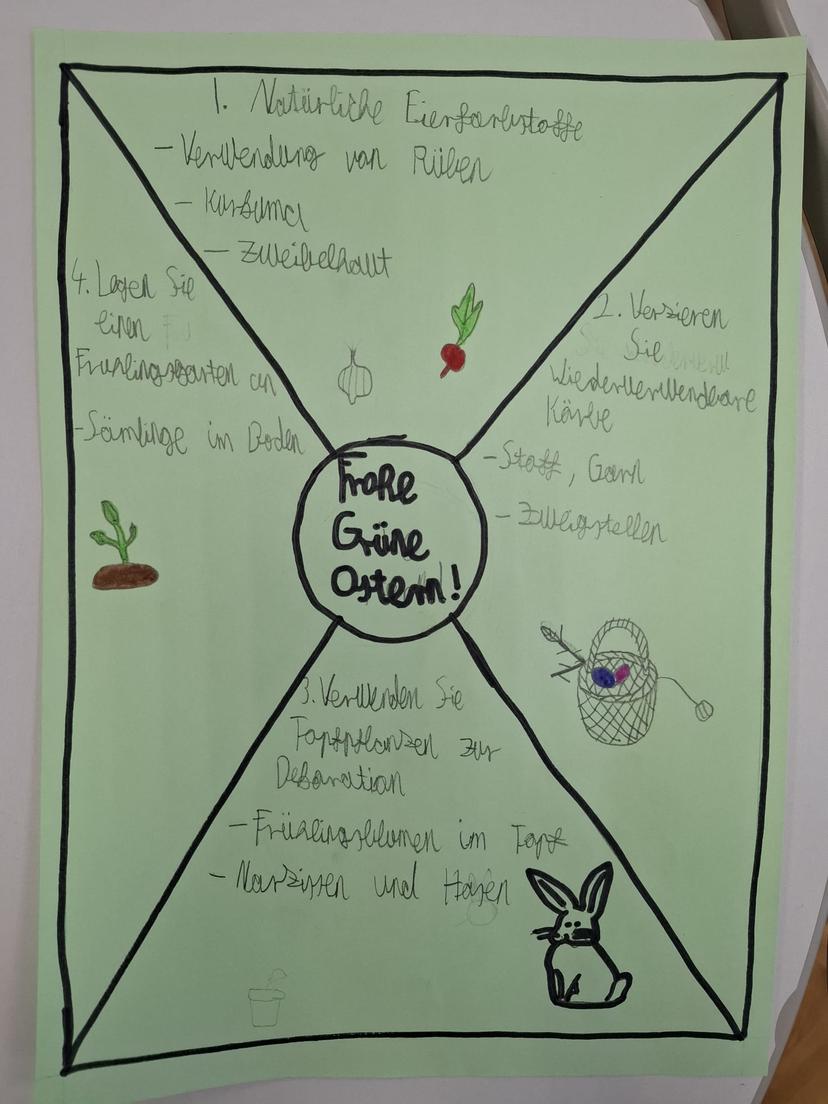 1. Natürliche Eierfarbstoffe
- Verwendung von Rüben
- Kurkuma
- Zweibelhaut
2. Verzieren
Sie
wiederverwendbare
Körbe
- Stoff, Garn
- Zweigstellen
3. Verwenden Sie
Topfpflanzen zur
Dekoration
- Frühlingsblumen im Topf
- Narzissen und Hasen
4. Legen Sie
einen
Frühlingsgarten an
- Sämlinge im Boden
Frohe
Grüne
Ostern!